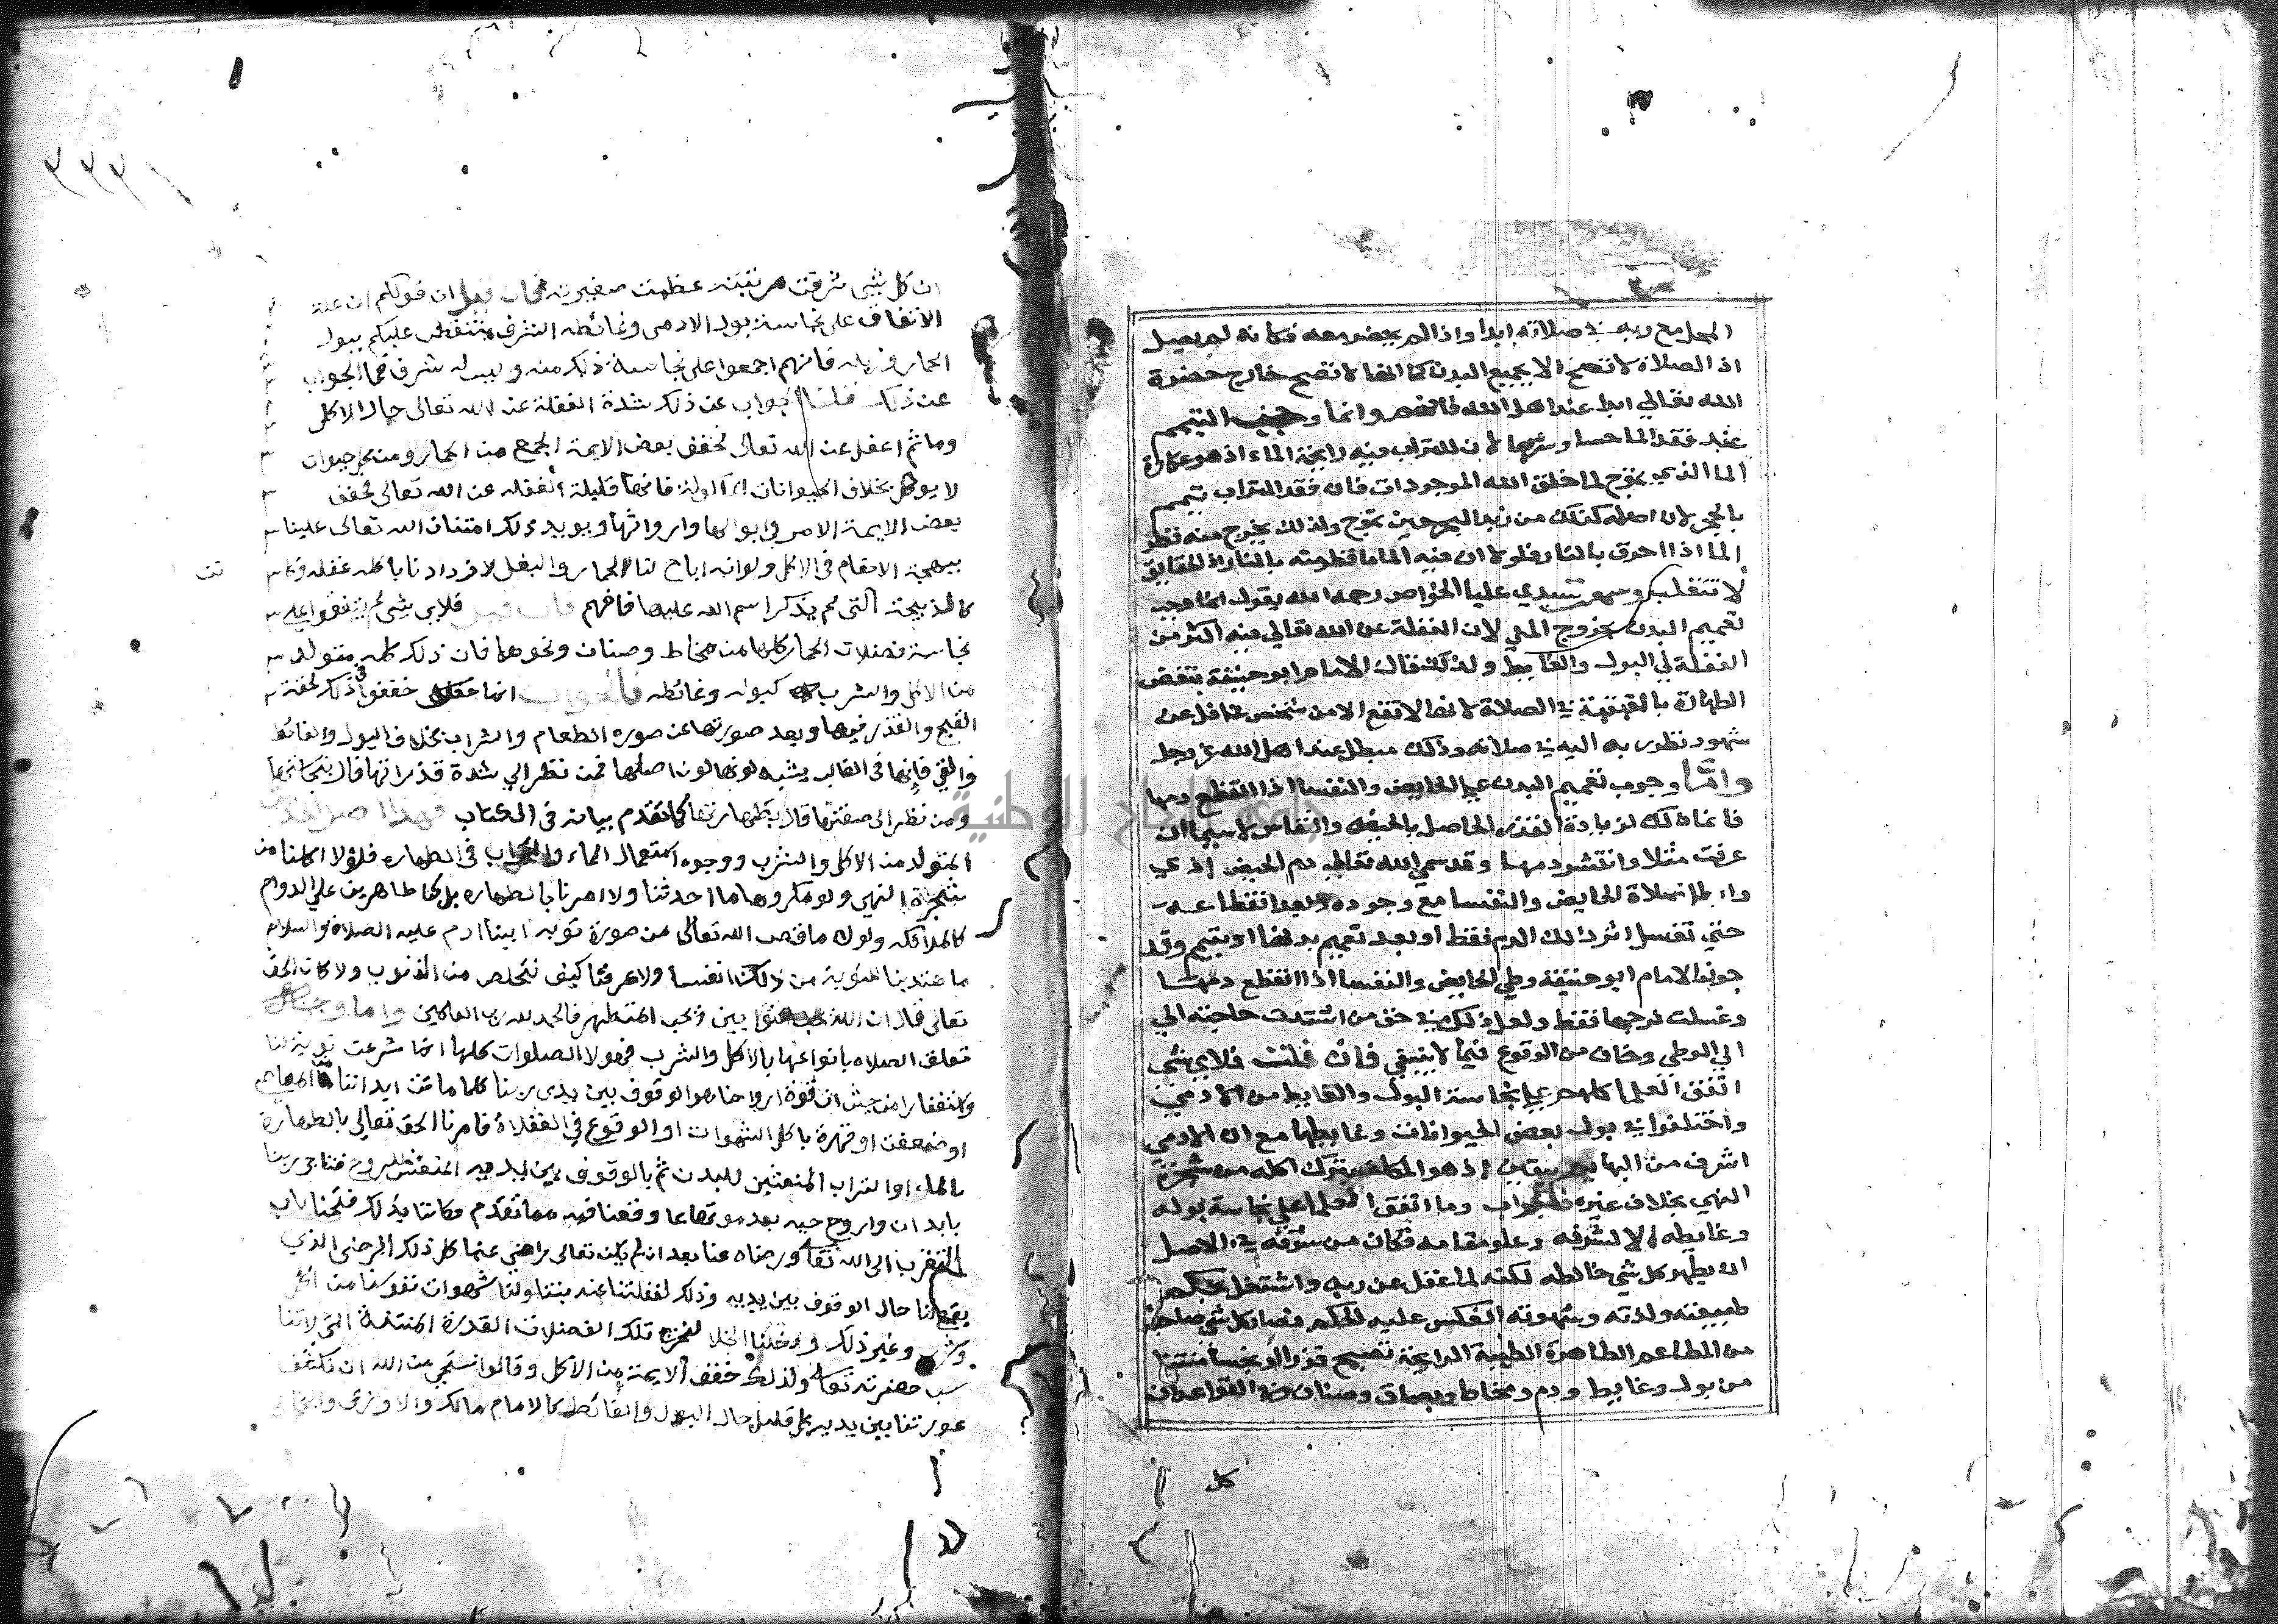 المحل مع ربه في صلاته ابدا واذا لم يحضر معه فكانه لم يصل
اذ الصلاة لا تصح الا بجميع البدن كما انها لا تصح خارج حضرة
الله تعالي ابدا عند اهل الله فافهم وانما وجب التيمم
عند فقد الما حسا وشرعا لان للتراب فيه رايحة الماء اذ هو عكارة
الما الذي تموج لما خلق الله الموجودات فان فقد التراب تيمم
بالحجر لان اصله كذلك من زبد البحر حين تموج ولذلك يخرج منه قطر
الما اذا احرق بالنار فلولا ان فيه الما ما قطرته بالنار اذ الحقايق
لا تنقلب وسمعت سيدي عليا الخواص رحمه الله يقول انما وجب
تعميم البدن بخروج المني لان الغفلة عن الله تعالي فيه اكثر من
الغفلة في البول والغايط ولذلك قال الامام ابو حنيفة بنقض
الطهارة بالقهقهة في الصلاة لانها لا تقع الا من شخص غافل عن
شهود نظر ربه اليه في صلاته وذلك مبطل عند اهل الله عز وجل
واما وجوب تعميم البدن علي الحايض والنفسا اذا انقطع دمها
فانما ذلك لزيادة القذر الحاصل بالحيض والنفاس لاسيما ان
عرقت مثلا وانتشر دمها وقد سمي الله تعالي دم الحيض اذي
وابطل صلاة الحايض والنفسا مع وجوده وبعد انقطاعه
حتي تغسل اثر ذلك الدم فقط او بعد تعميم بدنها او تتيمم وقد
جوز الامام ابو حنيفة وطي الحايض والنفسا اذا انقطع دمها
وغسلت فرجها فقط ولعل ذلك في حق من اشتدت حاجته الي
الي الوطي وخاف من الوقوع فيما لا ينبغي فان قلت فلاي شي
اتفق العلما كلهم علي نجاسة البول والغايط من الادمي
واختلفوا في بول بعض الحيوانات وغايطها مع ان الادمي
اشرف من البهايم بيقين اذ هو المكلف بترك اكله من شجرة
النهي بخلاف غيره فالجواب وما اتفق العلما علي نجاسة بوله
وغايطه الا لشرفه وعلو مقامه فكان من شرفه في الاصل
ان يطهر كل شي خالطه لكنه لما غفل عن ربه واشتغل بحكم
طبيعته ولذته وشهوته انعكس عليه الحكم فصار كل شي صاحبه
من المطاعم الطاهرة الطيبة الرايحة تصبح قذرا نجسا منتنا
من بول وغايط ودم ومخاط وبصاق وصنان ومن القواعد ان
كل
ان كل شي شرقت مرتبته عظمت صغيرته فان قيل ان قولكم ان علة
الاتفاق على نجاسة بول الادمي وغائطه الشرف ينتقض عليكم ببول
الحمار وزبله فانهم اجمعوا على نجاسة ذلك منه وليس له شرف فما الجواب
عن ذلك قلنا الجواب عن ذلك شدة الغفلة عن الله تعالى حال الاكل
وما ثم اغفل عن الله تعالى فخفف بعض الايمة من الحمار ومن كل حيوان
لا يوكل بخلاف الحيوانات الماكولة فانها قليلة الغفلة عن الله تعالى فخفف
بعض الايمة الامر في ابوالها واروائها ويويد ذلك امتنان الله تعالى علينا
ببهيمة الانعام في الاكل ولو انه اباح لنا الحمار والبغل لازدادنا باكله غفلة فكا
كالذبيحة التي لم يذكر اسم الله عليها فافهم فان قيل فلاي شي لم يتفقوا على
نجاسة فضلات الحمار كلها من مخاط وصنان ونحوهما فان ذلك كله متولد
من الاكل والشرب كبوله وغائطه فالجواب انما خففوا ذلك لخفة
القبح والقذر فيها وبعد صورتها عن صورة الطعام والشراب بخلاف البول والغائط
والقي فانها في الغالب يشبه لونها لون اصلها فمن نظر الي شدة قذراتها قال بنجاستها
ومن نظر الى صفتها قال بطهارتها كما تقدم بيانه في الكتاب فهذا اصل
المتولد من الاكل والشرب ووجوه استعمال الماء والتراب في الطهارة فلولا اكلنا من
شجرة النهي ولو مكروها ما احدثنا ولا امرنا بالطهارة بل كنا طاهرين علي الدوام
كالملائكة ولولا ما قص الله تعالى من صورة توبة ابينا ادم عليه الصلاة والسلام
ما عندنا للتوبة من ذلك انفسا ولا عرفنا كيف نتخلص من الذنوب ولا كان الحق
تعالى قال ان الله يحب التوابين ويحب المتطهر فالحمد لله رب العالمين واما وجه
تعلق الصلاه بانواعها بالاكل والشرب فهو لا الصلوات كلها انما شرعت توبة لنا
واستغفارا من حيث ان قوة ارواحنا هو الوقوف بين يدي ربنا كلما ماتت ابداننا
او ضعفت او قترة باكل الشهوات او الوقوع في الغفلاة فامرنا الحق تعالي بالطهارة
بالماء او التراب المنعشين للبدن ثم بالوقوف بين يديه المنعش للروح فنناجي ربنا
بابدان وارواح حية بعد موتها وقعنا فيه مما تقدم فكاننا بذلك فتحنا باب
التقرب الى الله تعا ورضاه عنا بعد ان لم يكن تعالى راضي عنا كل ذلك الرضى الذي
يقع لنا حال الوقوف بين يديه وذلك لغفلتنا عنه بتناولنا شهوات نفوسنا من اكل
وشرب وغير ذلك ودخلنا الخلا لنخرج تلك الفضلات القذرة المنتنة التي لا تنا
سب حضرته تعا ولذلك خفف الايمة من الاكل وقالوا نستحي من الله ان نكشف
عورتنا بين يديه كل قليل حال البول والغائط كالامام مالك والاوزعي